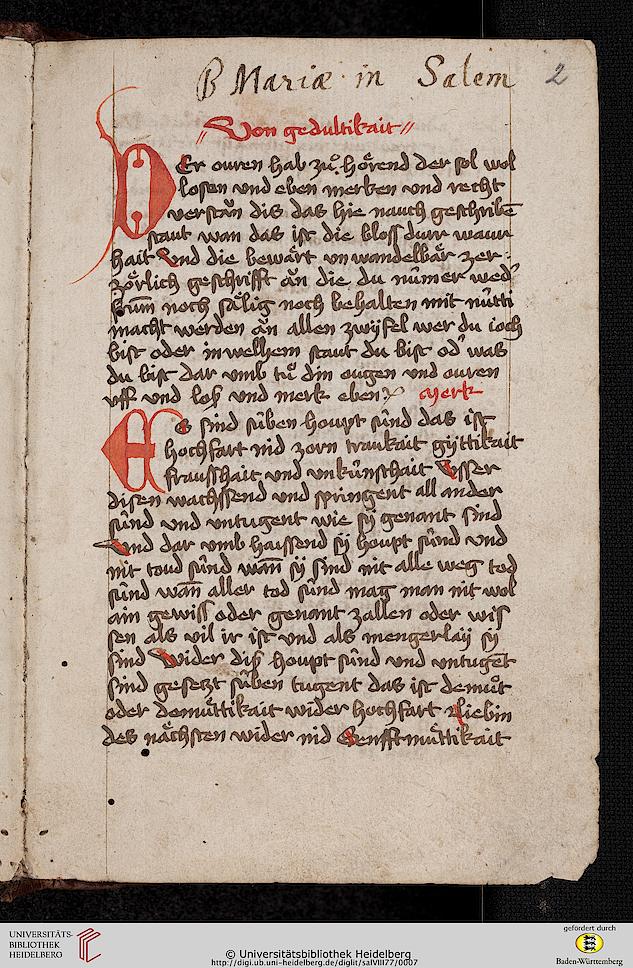 B Mariæ in Salem
2
Von gedultikait
Er ouren hab zů hörend der sol wol
losen vnd eben merken vnd recht
verstăn dis das hie nauch geschribē
staut wan das ist die bloss durr waur
hait Vnd die bewärt vn wandelbär zer
zörlich geschrifft ăn die du nümer
noch sälig noch behalten mit nütti
macht werden ăn allen zwyfel wer du ioch
bist oder in welhem staut du bist od' was
du bist dar vmb tů din ougen vnd ouren
vff vnd los vnd merk eben Merk
Es sind süben houpt sünd das ist
hochfart nid zorn traukait gyttikait
frausshait vnd vnkünschait Vsser
disen wachssend vnd springent all ander
sünd vnd vntugent wie sÿ genant sind
Vnd dar vmb haissend sÿ houpt sünd vnd
nit toud sünd wañ sÿ sind nit alle weg tod
sünd wañ aller tod sünd mag man nit wol
ain gewiss oder genant zallen oder wis
sen als vil ir ist vnd als mengerlaÿ sÿ
sind Wider dis houpt sünd vnd vntugēt
sind gesetzt süben tugent das ist demůt
oder demůttikait wider hochfart Liebin
des nächsten wider nid Senfftmůttikait
UNIVERSITÄTS-
BIBLIOTHEK
HEIDELBERG
© Universitätsbibliothek Heidelberg
http://digi.ub.uni-heidelberg.de/diglit/salVIII77/0007
gefördert durch
Baden-Württemberg